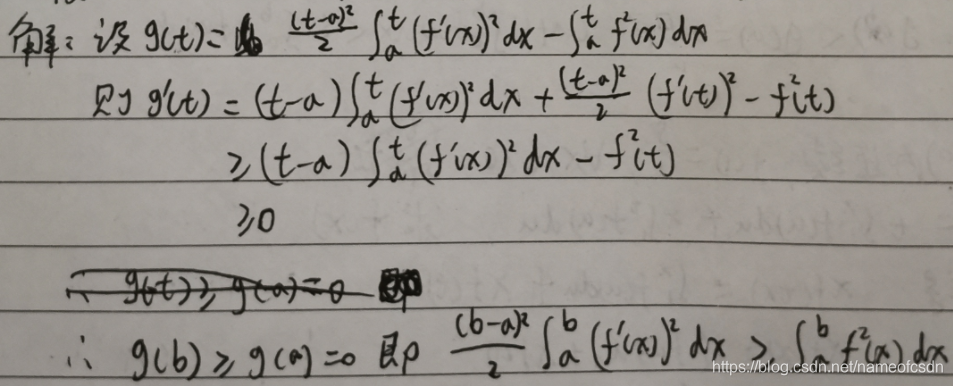 解：设 g(t)= (t-a)²/2 ∫ₐᵗ (f'(x))² dx - ∫ₐᵗ f²(x) dx
则 g'(t) = (t-a) ∫ₐᵗ (f'(x))² dx + (t-a)²/2 (f'(t))² - f²(t)
≥ (t-a) ∫ₐᵗ (f'(x))² dx - f²(t)
≥0
∴ g(t) ≥ g(a)=0
∴ g(b) ≥ g(a)=0 即 (b-a)²/2 ∫ₐᵇ (f'(x))² dx ≥ ∫ₐᵇ f²(x) dx
https://blog.csdn.net/nameofcsdn